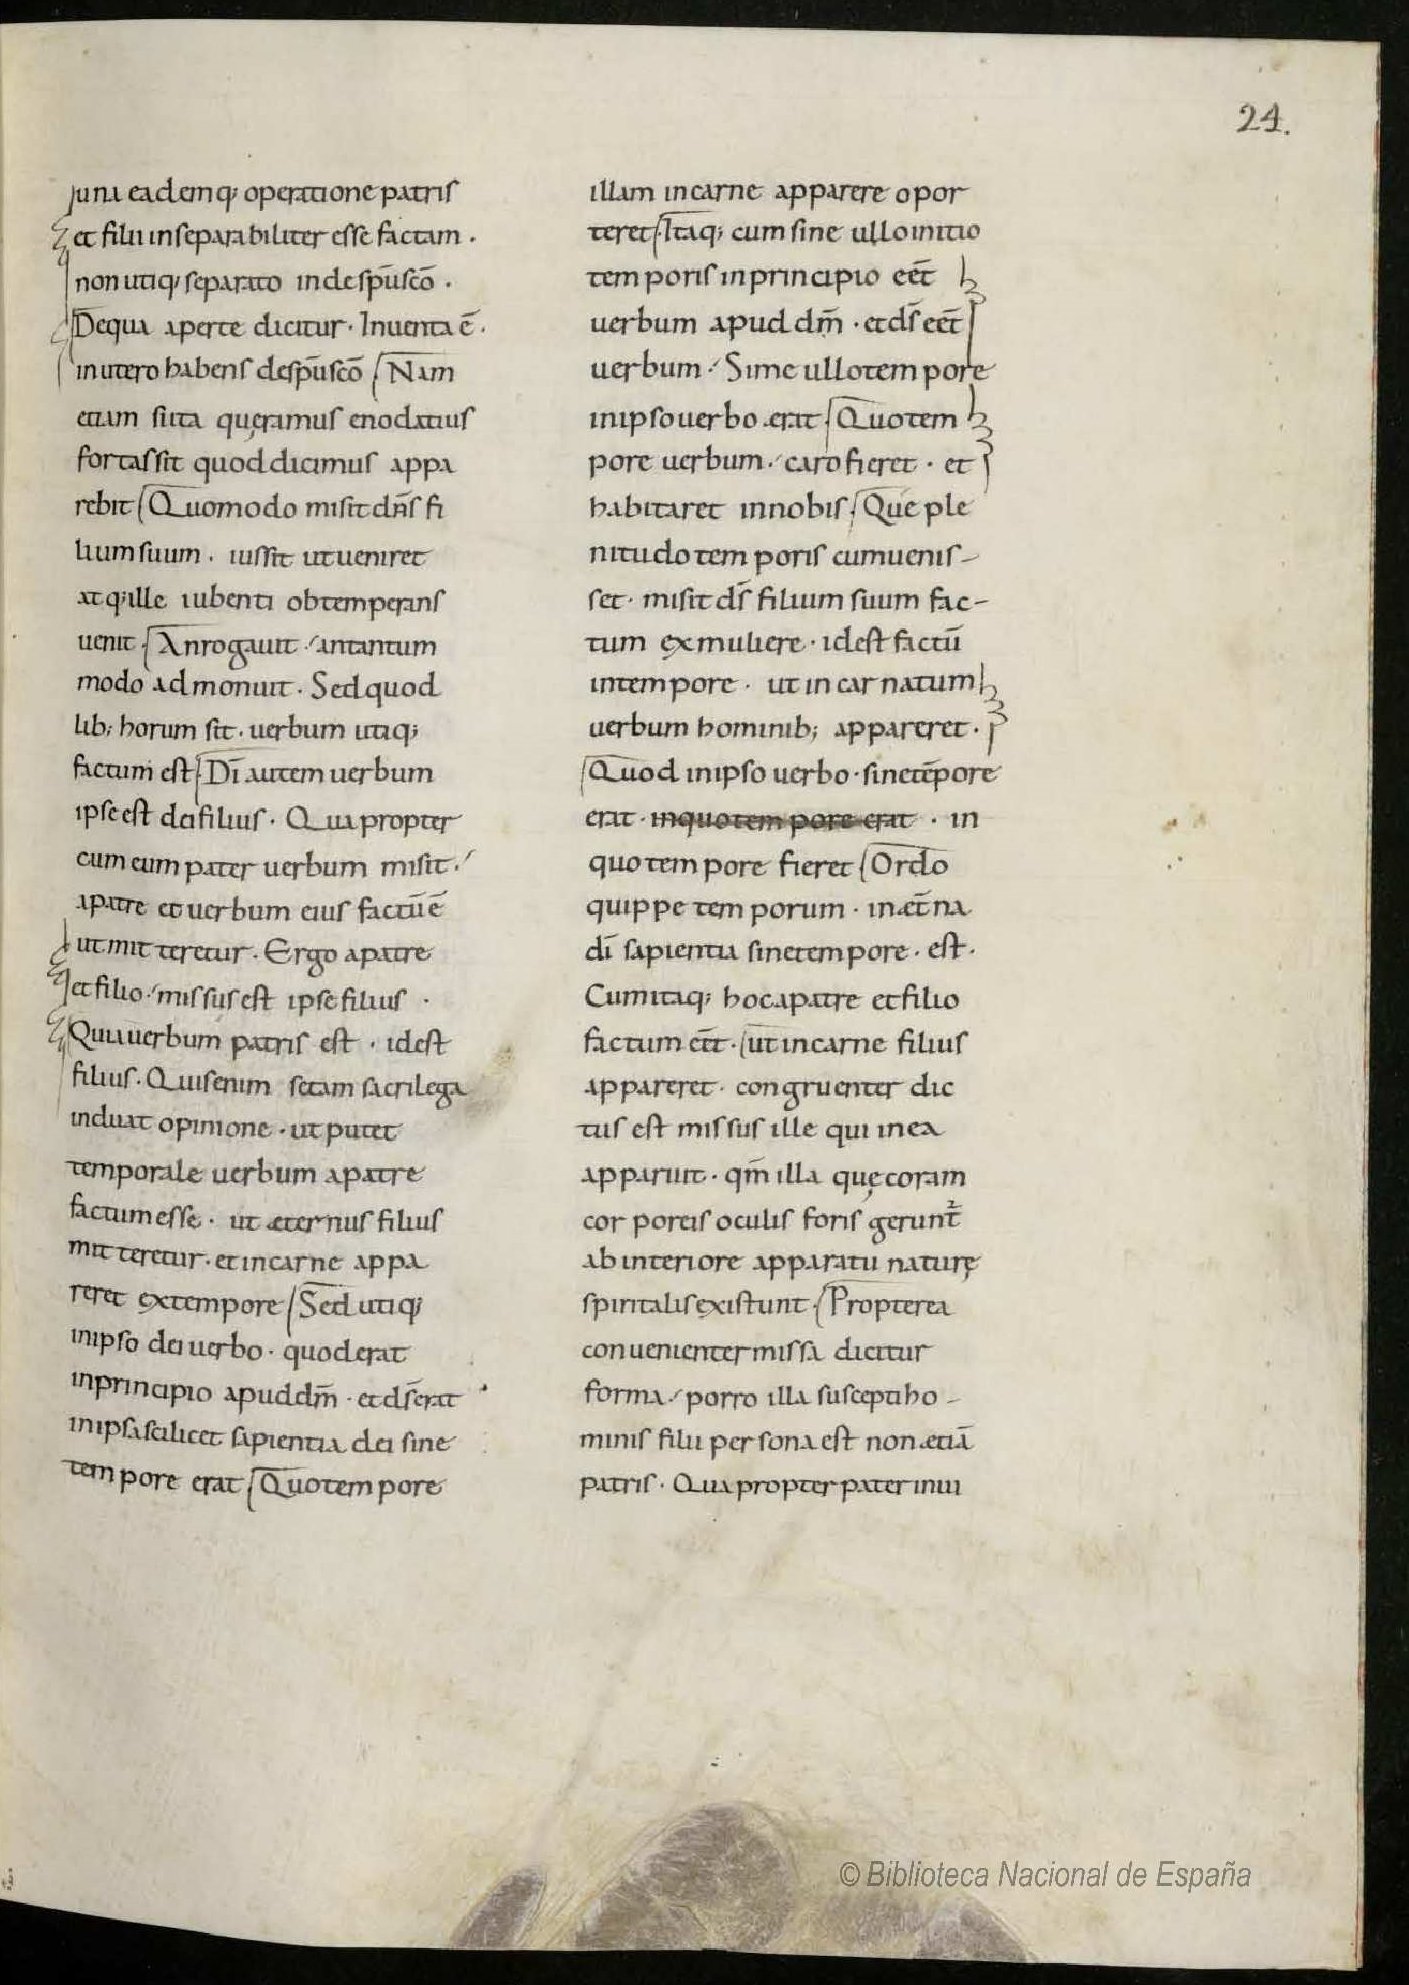 24.
una eademq; operatione patris
et filii inseparabiliter esse factam .
non utiq; separato inde sp̄u sc̄o .
De qua aperte dicitur · Inuenta ē .
in utero habens de sp̄u sc̄o Nam
etiam si ita quęramus enodatius
fortassit quod dicimus appa
rebit Quomodo misit dn̄s fi
lium suum . iussit ut ueniret
atq; ille iubenti obtemperans
uenit . An rogauit · an tantum
modo admonuit . Sed quod
lib; horum sit . uerbum utiq;
factum est Dī autem uerbum
ipse est dei filius . Qua propter
cum eum pater uerbum misit .
a patre et uerbum eius factū ē
ut mitteretur . Ergo a patre
et filio · missus est ipse filius .
Quia uerbum patris est . idest
filius . Quis enim se tam sacrilega
induat opinione . ut putet
temporale uerbum a patre
factum esse . ut æternus filius
mitteretur . et in carne appa
reret ex tempore Sed utiq;
in ipso dei uerbo . quod erat
in principio apud dm̄ . et ds̄ erat
in ipsa scilicet sapientia dei sine
tempore erat Quo tempore
illam in carne apparere opor
teret Itaq; cum sine ullo initio
temporis in principio eēt
uerbum apud dm̄ . et ds̄ eēt
uerbum . Sime ullo tempore
in ipso uerbo erat Quo tem
pore uerbum . caro fieret . et
habitaret in nobis . Que ple
nitudo temporis cum uenis-
set . misit ds̄ filium suum fac-
tum ex muliere . idest factū
in tempore . ut incarnatum
uerbum hominib; appareret .
Quod in ipso uerbo . sine tēpore
erat . in quo tempore erat . in
quo tempore fieret Ordo
quippe temporum . in æt̄na
dī sapientia sine tempore . est .
Cum itaq; hoc a patre et filio
factum eēt . ut in carne filius
appareret . congruenter dic
tus est missus ille qui in ea
apparuit . qm̄ illa quę coram
corporeis oculis foris gerunt̄
ab interiore apparatu naturę
spiritalis existunt . Propterea
conuenienter missa dicitur
forma . porro illa suscepti ho-
minis filii persona est non etiā
patris . Qua propter pater inui
© Biblioteca Nacional de España